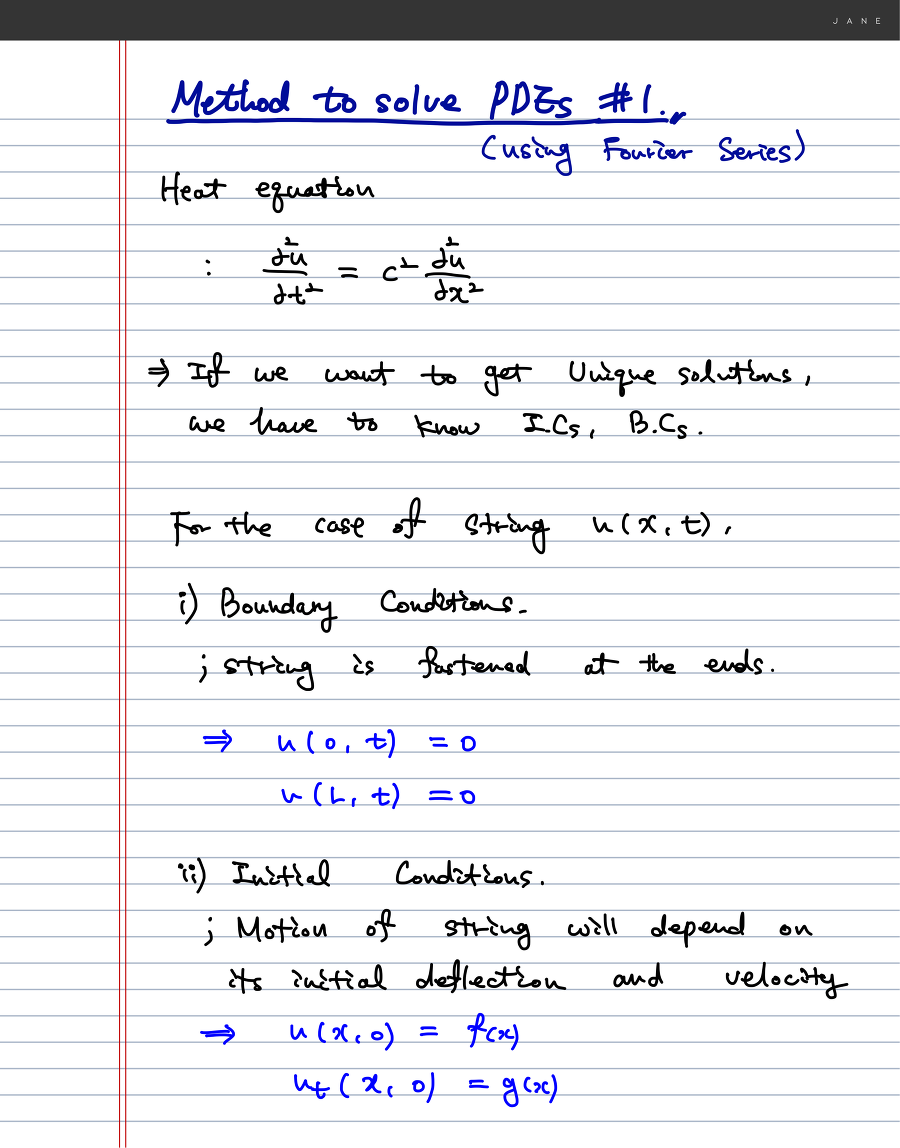 JANE
Method to solve PDEs #1.
(using Fourier Series)
Heat equation
: ∂²u/∂t² = c² ∂²u/∂x²
⇒ If we want to get Unique solutions,
we have to know I.Cs, B.Cs.
For the case of string u(x,t),
i) Boundary Conditions.
; string is fastened at the ends.
⇒ u(0,t) = 0
u(L,t) = 0
ii) Initial Conditions.
; Motion of string will depend on
its initial deflection and velocity
⇒ u(x,0) = f(x)
uₜ(x,0) = g(x)